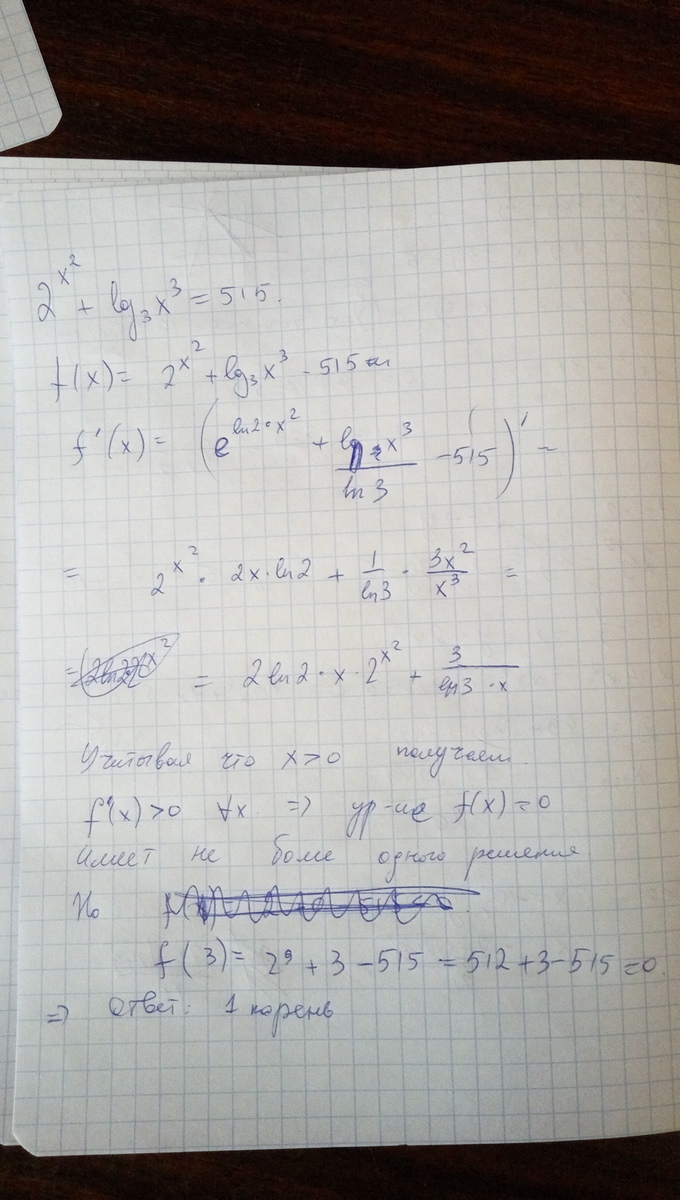 2^{x^2} + lg_3 x^3 = 515.
f(x) = 2^{x^2} + lg_3 x^3 - 515
f'(x) = (e^{ln2·x^2} + \frac{ln x^3}{ln 3} - 515)' =
= 2^{x^2} · 2x·ln2 + \frac{1}{ln3} · \frac{3x^2}{x^3} =
= 2ln2·x·2^{x^2} + \frac{3}{ln3·x}
Учитывая что x>0 получаем
f'(x)>0 ∀x => ур-ие f(x)=0
имеет не более одного решения
Но
f(3) = 2^9 + 3 - 515 = 512 + 3 - 515 = 0.
=> Ответ: 1 корень